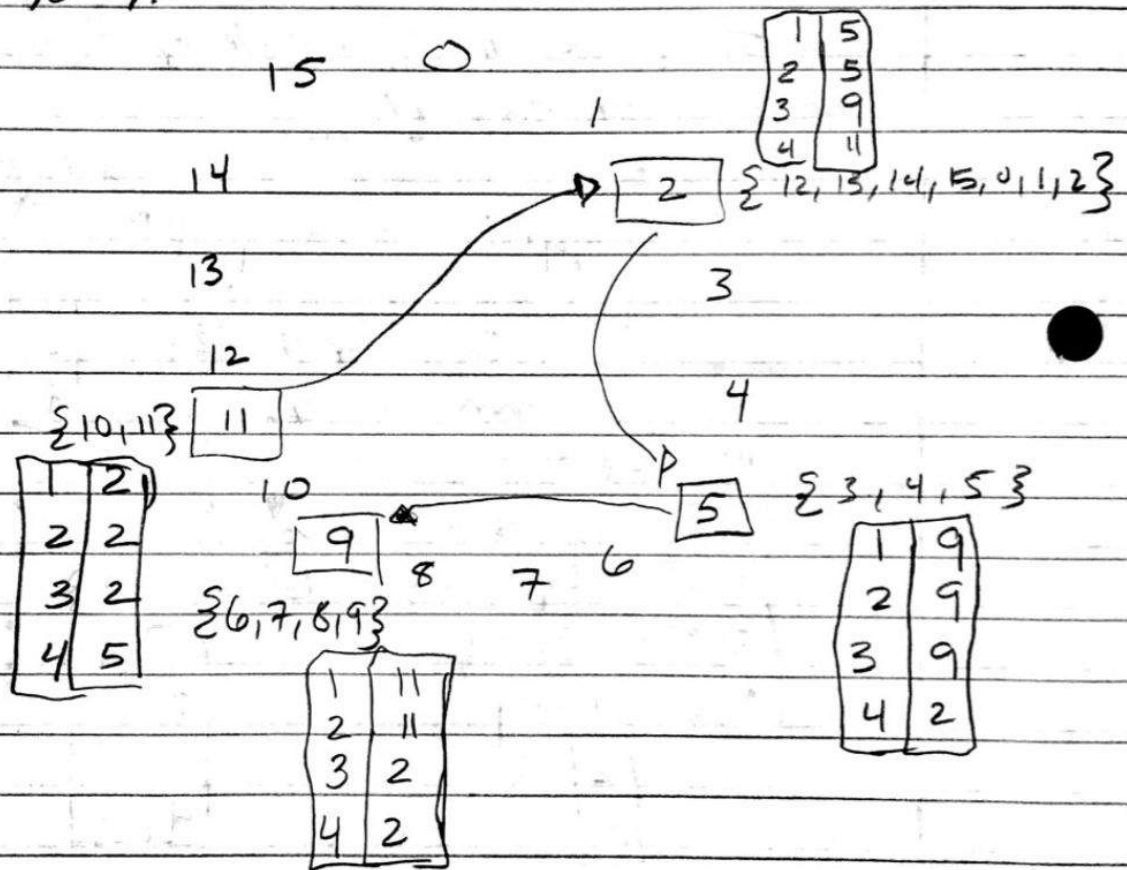 15 0
1 5
2 5
3 9
4 11
1
14
2 {12, 13, 14, 15, 0, 1, 2}
13
3
12
4
{10, 11} 11
1 2
2 2
3 2
4 5
10
5 {3, 4, 5}
9
8 7 6
1 9
2 9
3 9
4 2
{6, 7, 8, 9}
1 11
2 11
3 2
4 2